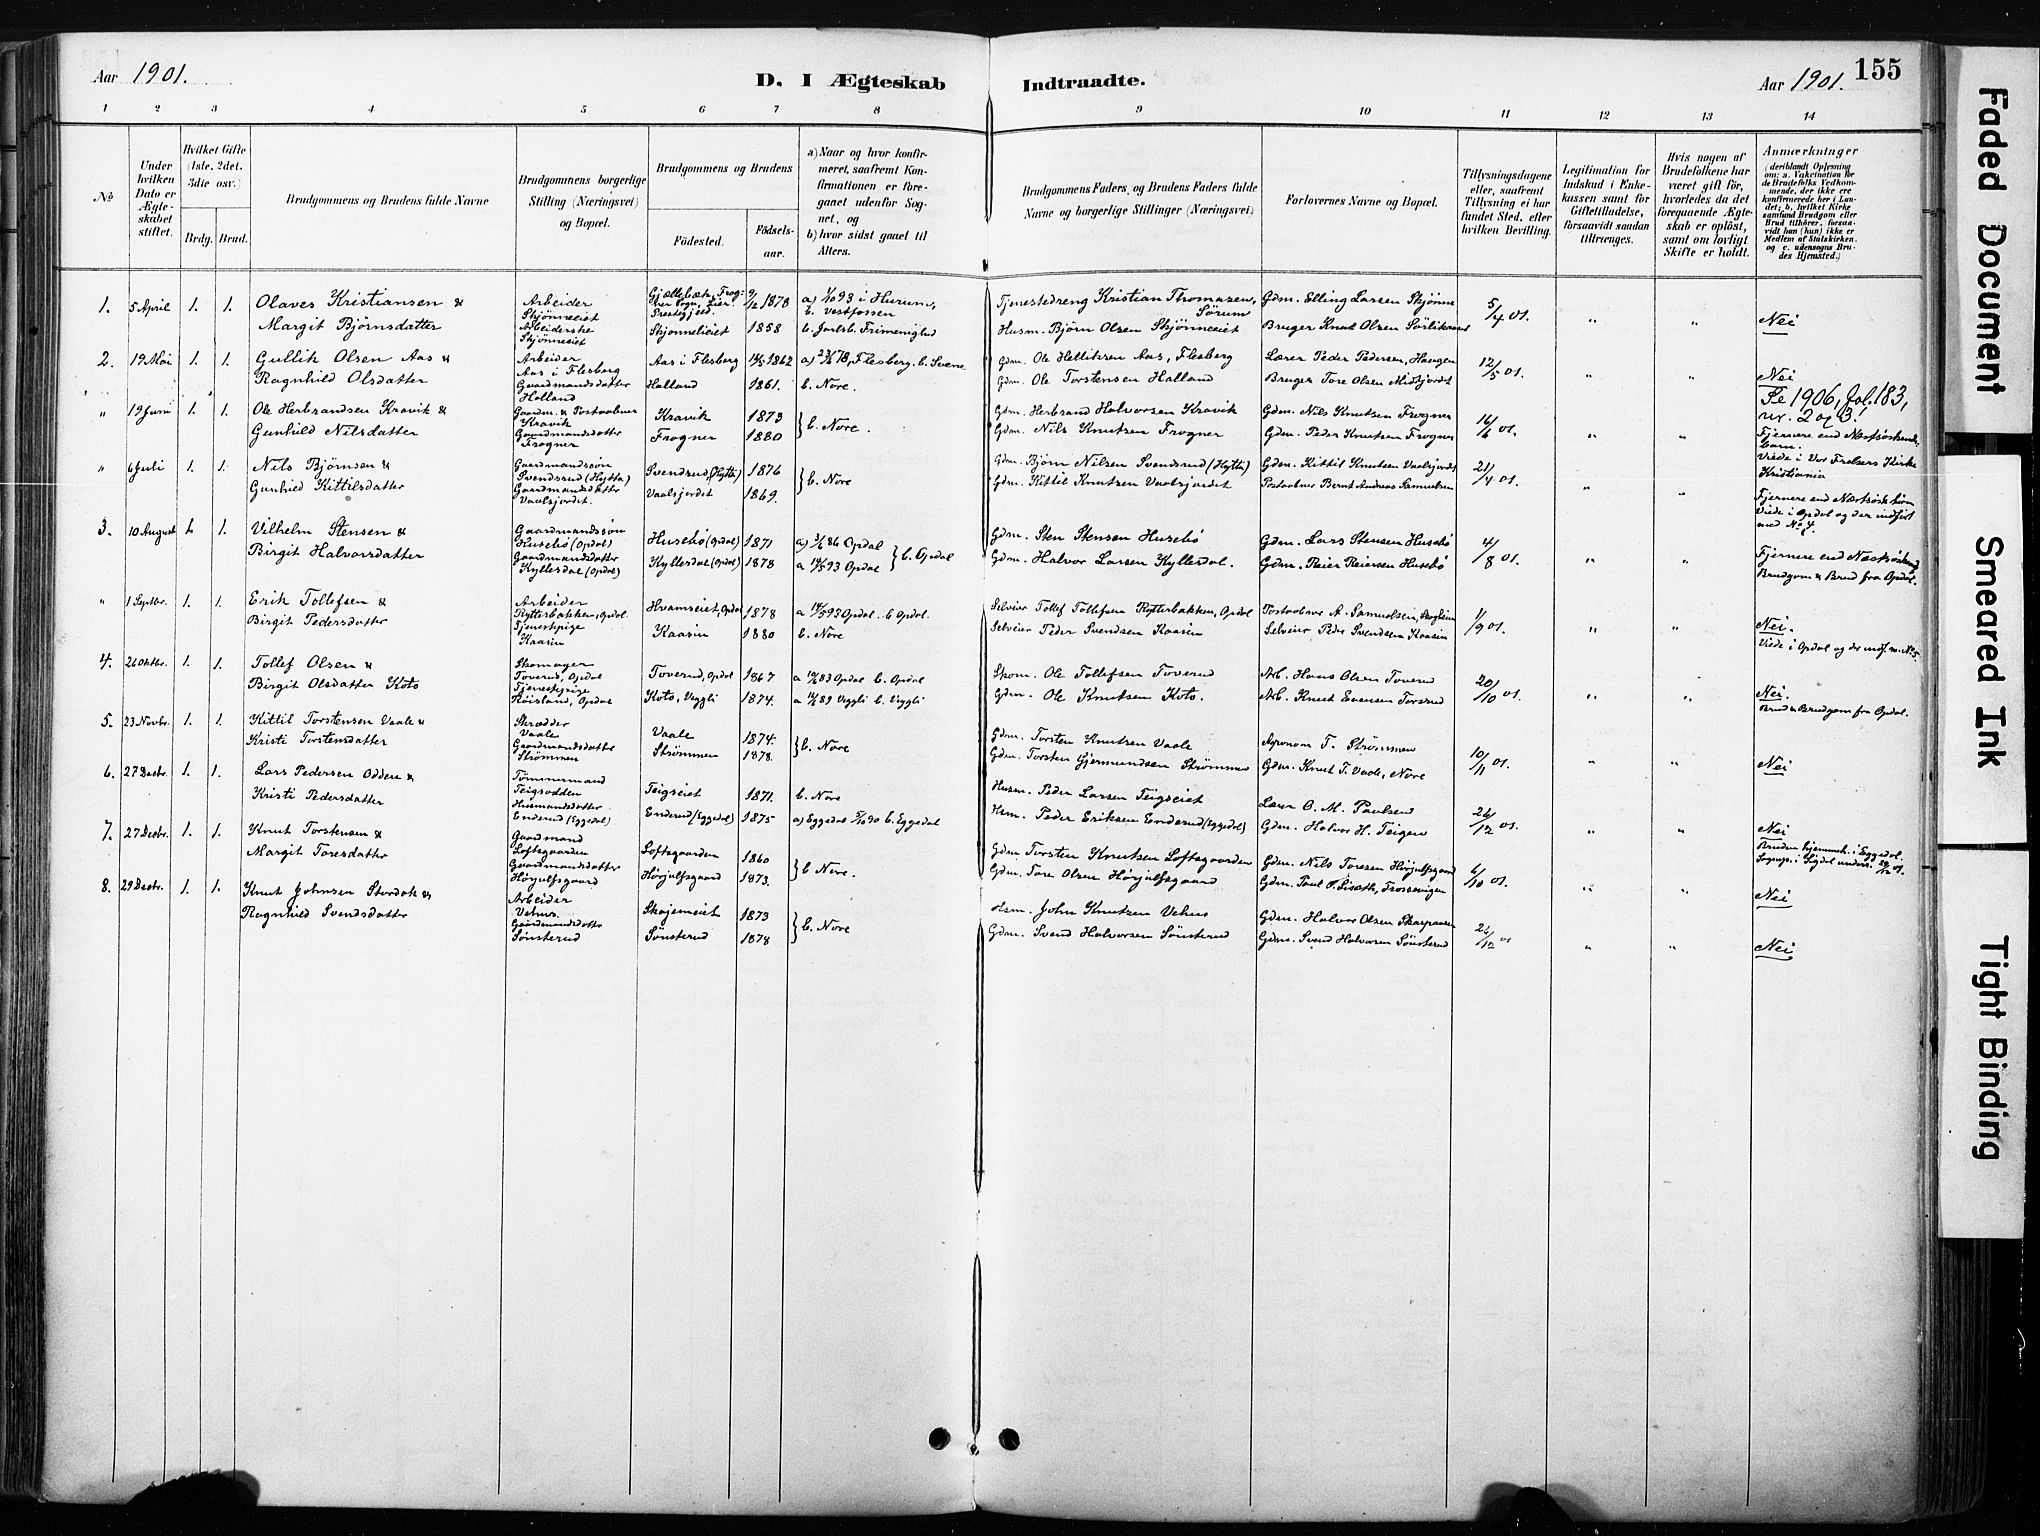 Aar 1901.
D. I Ægteskab Indtraadte.
Aar 1901. 155
1 2 3 4 5 6 7 8 9 10 11 12 13 14
No
Under hvilken Dato er Ægteskabet stiftet.
Hvilket Gifte (1ste, 2det, 3die osv.)
Brdg. Brud.
Brudgommens og Brudens fulde Navne
Brudgommens borgerlige Stilling (Næringsvei) og Bopæl.
Brudgommens og Brudens
Födested. Födselsaar.
a) Naar og hvor konfirmeret, saafremt Konfirmationen er foregaaet udenfor Sognet, og
b) hvor sidst gaaet til Alters.
Brudgommens Faders, og Brudens Faders fulde Navne og borgerlige Stillinger (Næringsvei)
Forlovernes Navne og Bopæl.
Tillysningsdagene eller, saafremt Tillysning ei har fundet Sted, efter hvilken Bevilling.
Legitimation for Indskud i Enkekassen samt for Giftetilladelse, forsaavidt saadan tiltrænges.
Hvis nogen af Brudefolkene har været gift för, hvorledes da det foregaaende Ægteskab er oplöst, samt om lovligt Skifte er holdt.
Anmærkninger
(deriblandt Oplysning om: a. Vakcination for Brudefolks Vedkommende, der ikke ere konfirmerede her i Landet; b. hvilket Kirkesamfund Brudgom eller Brud tilhører, forsaavidt han (hun) ikke er Medlem af Statskirken, og c. udensogns Brudes Hjemsted.)
1. 5 April 1. 1. Olaves Kristiansen & Arbeider Skjønneeiet Gjellebæk, Frogner Sogn, Lier Prestegjeld. 9/12 1878 a) 1/10 93 i Hurum, b. Vestfossen Tjenestedreng Kristian Thomasen, Sørum Gdm. Elling Larsen Skjønne 5/4 01. " " Nei
Margit Björnsdatter Arbeiderske Skjønneeiet Skjønneeiet 1858 b. Jarlsb. Frimenighed Husm. Bjørn Olsen Skjönneeiet Bruger Knut Olsen
2. 19 Mai 1. 1. Gullik Olsen Aas & Arbeider Aas i Flesberg Aas i Flesberg 1862 Flesberg. b. Svene Gdm. Ole Helliksen Aas, Flesberg Lærer Peder Pedersen, Haugen 12/5 01. " " Nei
Ragnhild Olsdatter Gaardmandsdatter Halland Halland 1861. b. Nore. Gdm. Ole Torstensen Halland Bruger Tore Olsen Midtfjordet
" 19 Juni 1. 1. Ole Herbrandsen Kravik & Gaardm. & Postaabner Kravik Kravik 1873 } b. Nore. Gdm. Herbrand Halvorsen Kravik Gdm. Nils Knutsen Frogner 16/6 01. " " Se 1906, fol. 183, nr. 2 og 3.
Gunhild Nilsdatter Gaardmandsdatter Frogner Frogner 1880 Gdm. Nils Knutsen Frogner Gdm. Peder Knutsen Frogner Fjernere end Næstsøskendebarn. Viede i Vor Frelsers Kirke Kristiania
" 6 Juli 1. 1. Nils Bjørnsen & Gaardmandssøn Svendsrud (Hytta) Svendsrud (Hytta) 1876 } b. Nore Gdm. Bjørn Nilsen Svendsrud (Hytta) Gdm. Kittil Knutsen Vaalsjordet 21/4 01. " "
Gunhild Kittilsdatter Gaardmandsdatter Vaalsjordet. Vaalsjordet 1869. Gdm. Kittil Knutsen Vaalsjordet Postaabner Bernt Andreas Samuelsen Fjernere end Næstsøskbørn Viede i Opdal og der indført med No 4.
3. 10 August 1. 1. Vilhelm Stensen & Gaardmandssøn Husebø (Opdal) Husebø (Opdal) 1871 86 Opdal } b. Opdal Gdm. Sten Stensen Husebø Gdm. Lars Stensen Husebø 4/8 01. " " Fjernere end Næstsøsknd
Birgit Halvorsdatter Gaardmandsdatter Kyllesdal (Opdal) Kyllesdal (Opdal) 1878 93 Opdal Gdm. Halvor Larsen Kyllesdal. Gdm. Reier Reiersen Husebø Brudgom & Brud fra Opdal.
" 1 Septbr. 1. 1. Erik Tollefsen & Arbeider Rytterbakken, Opdal Hvamseiet, Opdal 1878 93 Opdal. b Opdal. Selveier Tollef Tollefsen Rytterbakken, Opdal Postaabner A. Samuelsen, 1/9 01. " " Nei.
Birgit Pedersdatter Tjenestpige Kaasin Kaasin 1880 b. Nore Selveier Peder Svendsen Kaasin Selveier Peder Svendsen Kaasin Viede i Opdal og der indf. m. No 5.
4. 26 Oktbr. 1. 1. Tollef Olsen & Skomager Toverud, Opdal Toverud, Opdal 1867 83 Opdal b. Opdal Skom. Ole Tollefsen Toverud Arb. Hans Olsen Toverud 20/10 01. " " Nei.
Birgit Olsdatter Koto Tjenestpige Røisland, Opdal Koto, Veggli 1874. 89 Veggli b. Veggli Gdm. Ole Knutsen Koto. Arb. Knut Evensen Brud & Brudgom fra Opdal.
5. 23 Novbr. 1. 1. Kittil Torstensen Vaale & Skrædder Vaale Vaale 1874. } b. Nore Gdm. Torsten Knutsen Vaale Agronom T. Strømmen 10/11 01. " " Nei
Kristi Torstensdatter Gaardmandsdatter Strømmen Strømmen 1878. Gdm. Torsten Gjermundsen Strømmen Gdm. Knut T. Vaale, Nore
6. 27 Decbr. 1. 1. Lars Pedersen Odden & Tømmermand Teigsodden Teigseiet 1871. b. Nore Husm. Peder Larsen Teigseiet Lærer O. M. Paulsen 26/12 01. " " Nei
Kristi Pedersdatter Husmandsdatter Enderud (Eggedal) Enderud (Eggedal) 1875 a) Eggedal 5/10 90 b. Eggedal Hsm. Peder Eriksen Enderud (Eggedal) Gdm. Halvor H. Teigen Bruden hjemmeh. i Eggedal. Sogneps. i Sigdal underr.
7. 27 Decbr. 1. 1. Knut Torstensen & Gaardmand Loftsgaarden Loftsgaarden 1860 } b Nore. Gdm Torsten Knutsen Loftsgaarden Gdm. Nils Toresen Hørjulfsgaard 6/10 01. " " Nei
Margit Toresdatter Gaardmandsdatter Hørjulfsgaard Hørjulfsgaard 1873. Gdm. Tore Olsen Hørjulfsgaard Gdm. Paul
8. 29 Decbr. 1. 1. Knut Johnsen Stordok & Arbeider Vehus. Skøjemeiet 1873 } b. Nore Hsm. John Knutsen Vehus Gdm. Halvor Olsen 26/12 01 " " Nei
Ragnhild Svendsdatter Gaardmandsdatter Sønsterud Sønsterud 1878 Gdm. Svend Halvorsen Sønsterud Gdm. Svend Halvorsen Sønsterud
Faded Document
Smeared Ink
Tight Binding